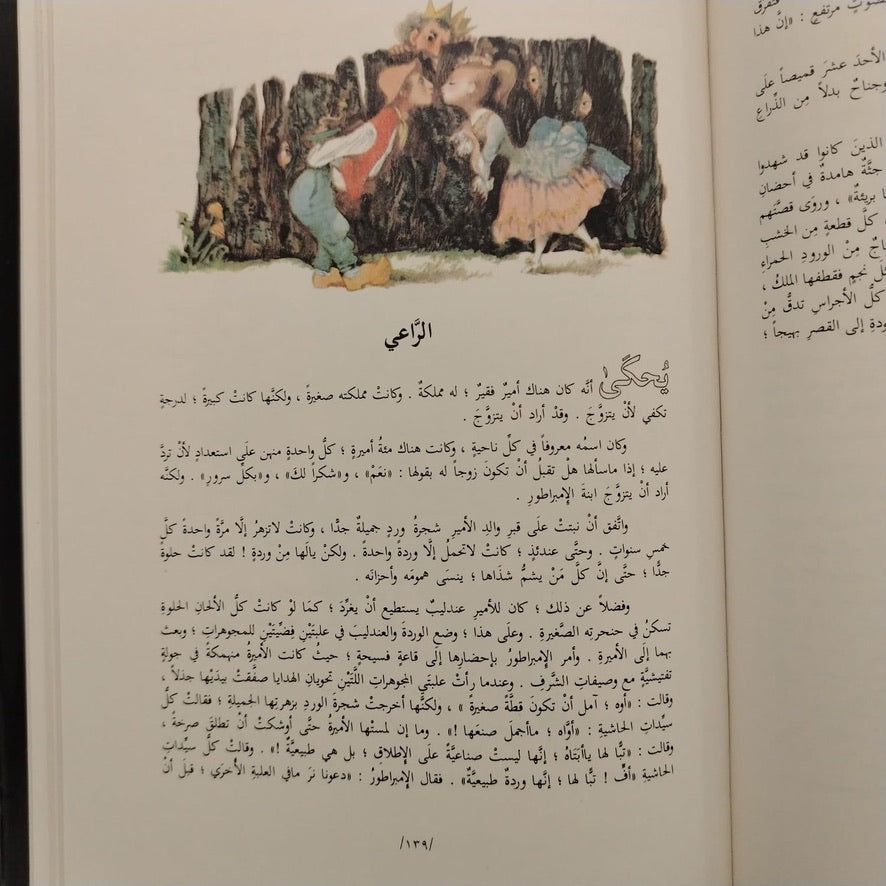 صوتٍ مرتفعٍ : «إنَّ هذا
الأحدَ عشرَ قميصاً علَى
وجناحٌ بدلاً مِن الذِّراعِ
الذينَ كانوا قد شهدوا
جثَّةٌ هامدةٌ في أحضانِ
بريئةٌ» ، وروَى قصَّتَهم
كلَّ قطعةٍ مِن الخشبِ
مِنْ الورودِ الحمراءِ
نجمٍ فقطفها الملكُ ،
كلُّ الأجراسِ تدقُّ مِنْ
إلى القصرِ بهيجاً ؛
الرَّاعي
يُحكَىٰ أنَّه كان هناك أميرٌ فقيرٌ ؛ له مملكةٌ . وكانتْ مملكته صغيرةً ، ولكنَّها كانتْ كبيرةً ؛ لدرجةٍ
تكفي لأنْ يتزوَّجَ . وقدْ أراد أنْ يتزوَّجَ .
وكان اسمُه معروفاً في كلِّ ناحيةٍ ، وكانت هناك مئةُ أميرةٍ ؛ كلُّ واحدةٍ منهن علَى استعدادٍ لأنْ تردَّ
عليه ؛ إذا ماسألها هلْ تقبلُ أنْ تكونَ زوجاً له بقولها : «نعَمْ» ، و«شكراً لكَ» ، و«بكلِّ سرورٍ» . ولكنَّه
أراد أنْ يتزوَّجَ ابنةَ الإمبراطورِ .
واتَّفق أنْ نبتتْ علَى قبرِ والدِ الأميرِ شجرةُ وردٍ جميلةٌ جدًّا ، وكانتْ لاتزهرُ إلَّا مرَّةً واحدةً كلَّ
خمسِ سنواتٍ . وحتَّى عندئذٍ ؛ كانتْ لاتحملُ إلَّا وردةً واحدةً . ولكنْ يالَها مِنْ وردةٍ ! لقد كانتْ حلوةً
جدًّا ؛ حتَّى إنَّ كلَّ مَنْ يشمُّ شذَاها ؛ ينسَى همومَه وأحزانَه .
وفضلاً عن ذلك ؛ كان للأميرِ عندليبٌ يستطيع أنْ يغرِّدَ ؛ كمَا لوْ كانتْ كلُّ الألحانِ الحلوةِ
تسكنُ في حنجرتِه الصَّغيرةِ . وعلَى هذا ؛ وضع الوردةَ والعندليبَ في علبتَيْنِ فضِّيَّتَيْنِ للمجوهراتِ ؛ وبعث
بهما إلَى الأميرةِ . وأمر الإمبراطورُ بإحضارِها إلَى قاعةٍ فسيحةٍ ؛ حيثُ كانت الأميرةُ منهمكةً في جولةٍ
تفتيشيَّةٍ مع وصيفاتِ الشَّرفِ . وعندما رأتْ علبتَي المجوهراتِ اللَّتَيْنِ تحويانِ الهدايا صفَّقتْ بيدَيْها جذلاً ،
وقالت : «أوه ؛ آمل أنْ تكونَ قطَّةً صغيرةً » ، ولكنَّها أخرجتْ شجرةَ الوردِ بزهرتِها الجميلةِ ؛ فقالتْ كلُّ
سيِّداتِ الحاشيةِ : «أوَّاه ؛ ماأجملَ صنعَها !» . وما إن لمستْها الأميرةُ حتَّى أوشكتْ أنْ تطلقَ صرخةً ،
وقالت : «تبًّا لها ياأبَتَاهْ ؛ إنَّها ليستْ صناعيَّةً علَى الإطلاقِ ؛ بل هي طبيعيَّةٌ !» . وقالتْ كلُّ سيِّداتِ
الحاشيةِ «أفٍّ ! تبًّا لها ؛ إنَّها وردةٌ طبيعيَّةٌ» . فقال الإمبراطورُ : «دعونا نرَ مافي العلبةِ الأُخرَي ؛ قبلَ أنْ
/١٣٩/